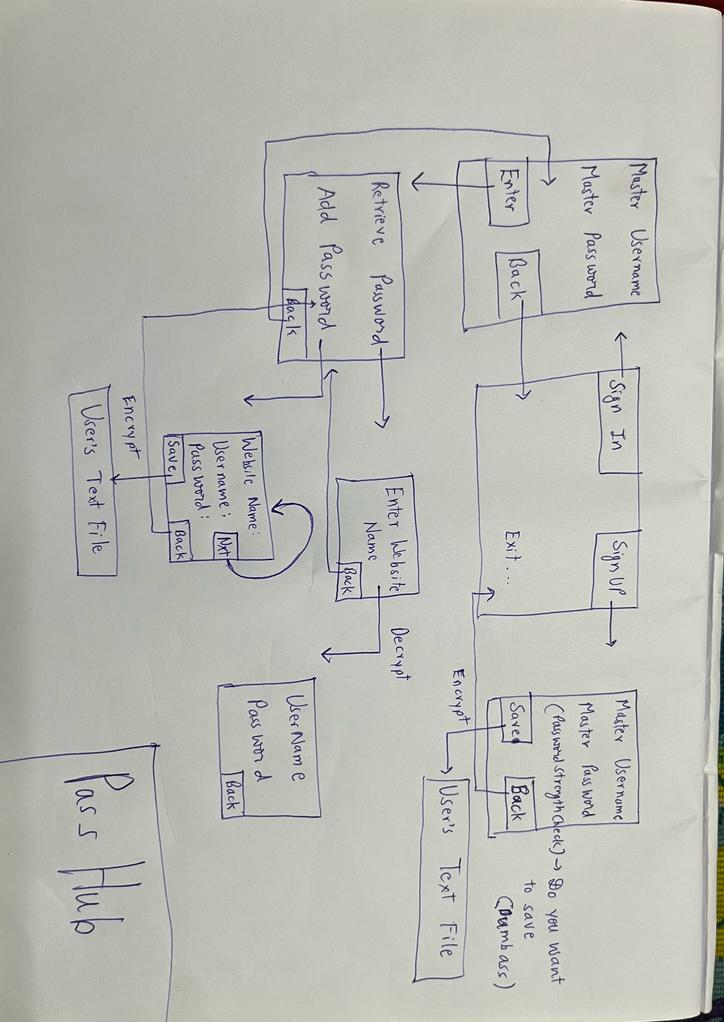 Master Username
Master Password
Enter
Back
Sign In
Sign UP
Exit...
Master Username
Master Password
(Password Strength Check) → Do you want
to save
(Dumbass)
Save
Back
Encrypt
User's Text File
Retrieve Password
Add Password
Back
Enter Website
Name
Back
Decrypt
UserName
Password
Back
Website Name:
Username:
Nxt
Password:
Save
Back
Encrypt
User's Text File
Pass Hub